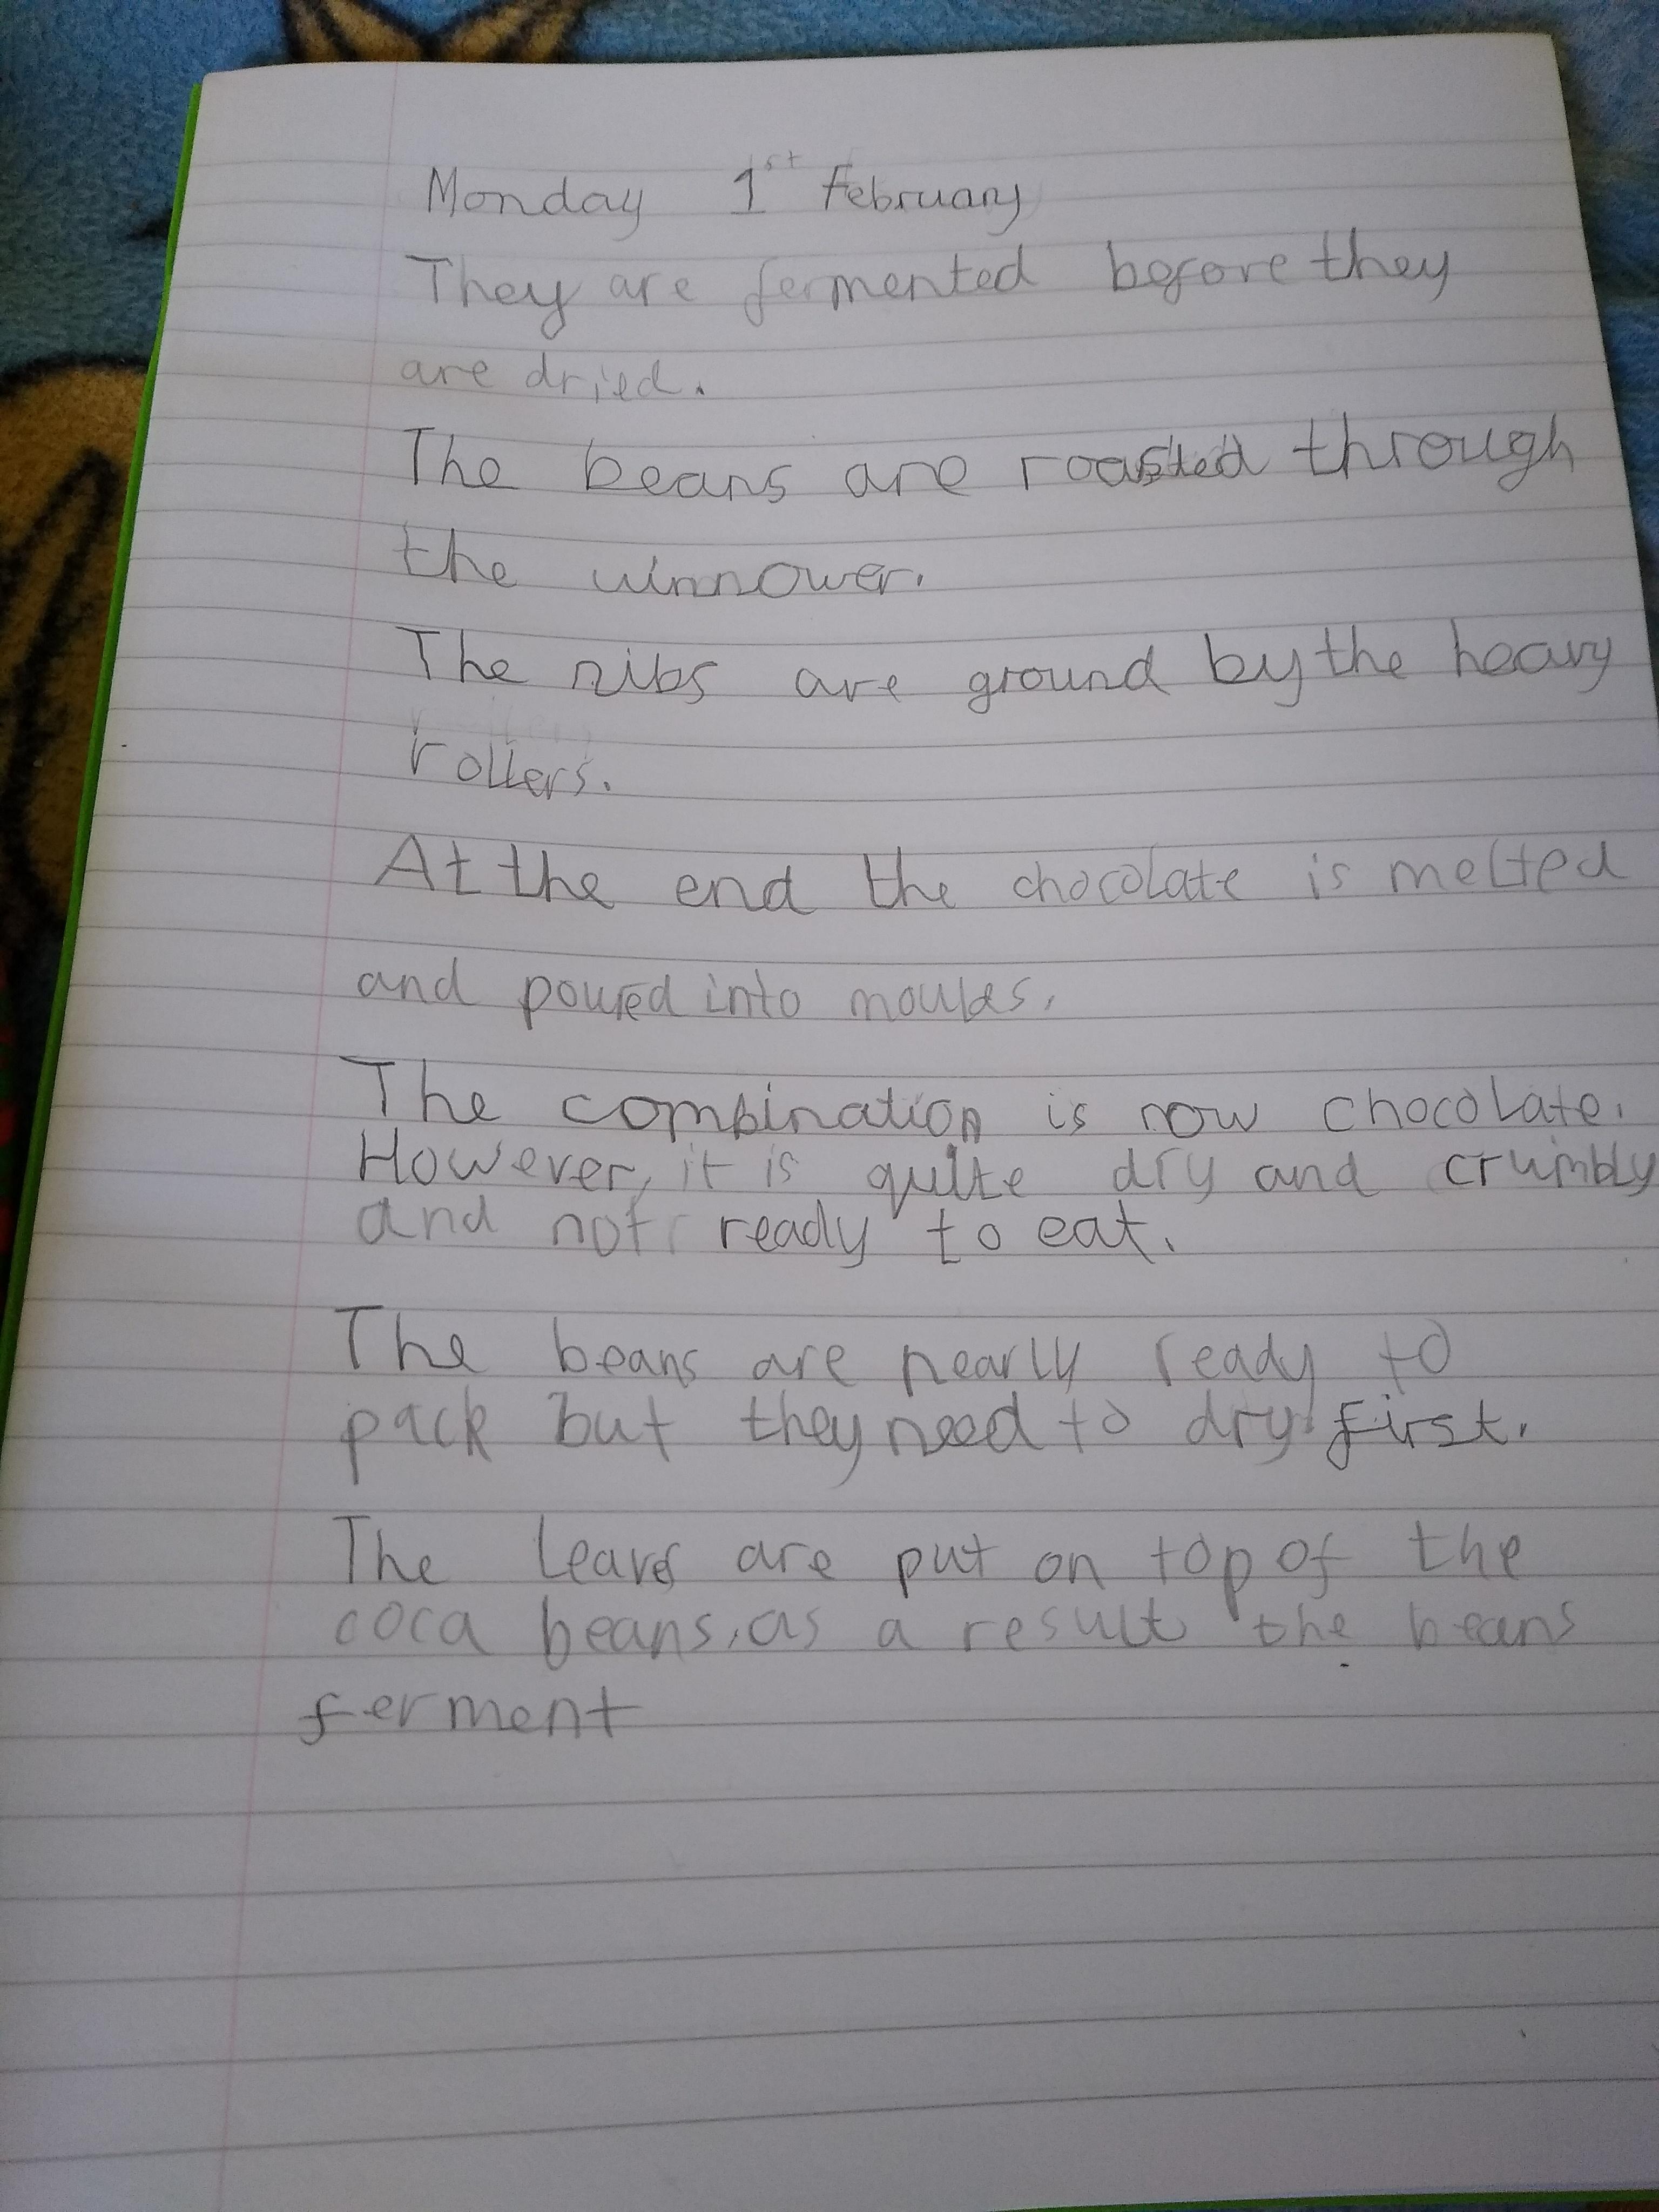 Monday 1st February
They are fermented before they
are dried.
The beans are roasted through
the winnower.
The nibs are ground by the heavy
rollers.
At the end the chocolate is melted
and poured into moulds.
The combination is now chocolate.
However, it is quite dry and crumbly
and not ready to eat.
The beans are nearly ready to
pack but they need to dry first.
The leaves are put on top of the
coca beans, as a result the beans
ferment